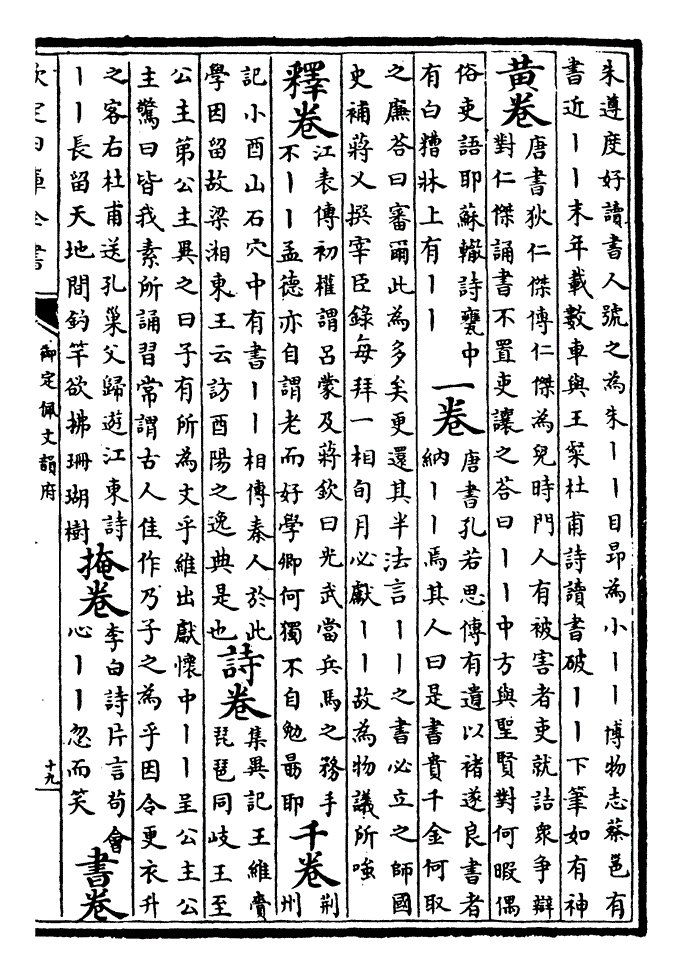 朱遵度好讀書人號之為朱丨丨目昴為小丨丨博物志蔡邕有
書近丨丨末年載數車與王粲杜甫詩讀書破丨丨下筆如有神
黃卷
唐書狄仁傑傳仁傑為兒時門人有被害者吏就詰衆爭辯
對仁傑誦書不置吏讓之荅曰丨丨中方與聖賢對何暇偶
俗吏語耶蘇轍詩甕中
有白糟牀上有丨丨
一卷
唐書孔若思傳有遺以褚遂良書者
納丨丨焉其人曰是書貴千金何取
之廉荅曰審爾此為多矣更還其半法言丨丨之書必立之師國
史補蔣乂撰宰臣錄每拜一相旬月必獻丨丨故為物議所嗤
釋卷
江表傳初權謂呂蒙及蔣欽曰光武當兵馬之務手
不丨丨孟德亦自謂老而好學卿何獨不自勉朂耶
千卷
荆
州
記小酉山石穴中有書丨丨相傳秦人於此
學因留故梁湘東王云訪酉陽之逸典是也
詩卷
集異記王維賫
琵琶同岐王至
公主第公主異之曰子有所為文乎維出獻懷中丨丨呈公主公
主驚曰皆我素所誦習常謂古人佳作乃子之為乎因令更衣升
之客右杜甫送孔巢父歸遊江東詩
丨丨長留天地間釣竿欲拂珊瑚樹
掩卷
李白詩片言苟會
心丨丨忽而笑
書卷
欽定四庫全書
御定佩文韻府
十九